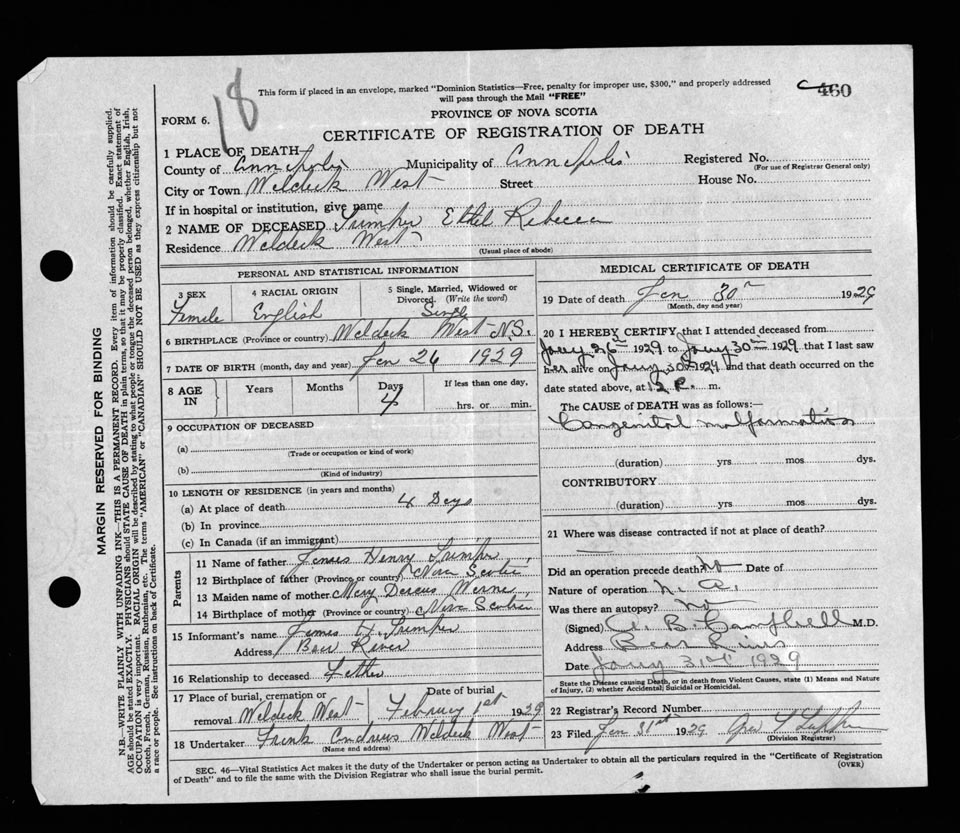 18
This form if placed in an envelope, marked "Dominion Statistics—Free, penalty for improper use, $300," and properly addressed
will pass through the Mail "FREE"
460
FORM 6.
PROVINCE OF NOVA SCOTIA
CERTIFICATE OF REGISTRATION OF DEATH
1 PLACE OF DEATH
County of Annapolis Municipality of Annapolis Registered No.
(For use of Registrar General only)
City or Town Weldeck West Street House No.
If in hospital or institution, give name
2 NAME OF DECEASED Trimper Ethel Rebecca
Residence Weldeck West
(Usual place of abode)
PERSONAL AND STATISTICAL INFORMATION
3 SEX
Female
4 RACIAL ORIGIN
English
5 Single, Married, Widowed or
Divorced. (Write the word)
Single
6 BIRTHPLACE (Province or country) Weldeck West N.S.
7 DATE OF BIRTH (month, day and year) Jan 26 1929
8 AGE
IN
Years
Months
Days
4
If less than one day,
hrs. or min.
9 OCCUPATION OF DECEASED
(a)
(Trade or occupation or kind of work)
(b)
(Kind of industry)
10 LENGTH OF RESIDENCE (in years and months)
(a) At place of death 4 Days
(b) In province
(c) In Canada (if an immigrant)
Parents
11 Name of father James Henry Trimper
12 Birthplace of father (Province or country) Nova Scotia
13 Maiden name of mother Mary Dorcas Warne
14 Birthplace of mother (Province or country) Nova Scotia
15 Informant's name James H. Trimper
Address Bear River
16 Relationship to deceased Father
17 Place of burial, cremation or
removal Weldeck West
Date of burial
February 1st 1929
18 Undertaker Frank Andrews Weldeck West
(Name and address)
MEDICAL CERTIFICATE OF DEATH
19 Date of death Jan 30th 1929
(Month, day and year)
20 I HEREBY CERTIFY, that I attended deceased from
Jany 26th 1929 to Jany 30th 1929 that I last saw
her alive on Jany 30th 1929 and that death occurred on the
date stated above, at 12 P. m.
The CAUSE OF DEATH was as follows:—
Congenital malformation
(duration) yrs mos dys.
CONTRIBUTORY
(duration) yrs mos dys.
21 Where was disease contracted if not at place of death?
Did an operation precede death? No Date of
Nature of operation N. A.
Was there an autopsy? No
(Signed) A. B. Campbell M.D.
Address Bear River
Date Jany 31st 1929
State the Disease causing Death, or in death from Violent Causes, state (1) Means and Nature
of Injury, (2) whether Accidental, Suicidal or Homicidal.
22 Registrar's Record Number
23 Filed Jan 31st 1929
(Division Registrar)
SEC. 46—Vital Statistics Act makes it the duty of the Undertaker or person acting as Undertaker to obtain all the particulars required in the "Certificate of Registration
of Death" and to file the same with the Division Registrar who shall issue the burial permit.
(OVER)
MARGIN RESERVED FOR BINDING
N.B.—WRITE PLAINLY WITH UNFADING INK—THIS IS A PERMANENT RECORD. Every item of information should be carefully supplied.
AGE should be stated EXACTLY. PHYSICIANS should STATE CAUSE OF DEATH in plain terms, so that it may be properly classified. Exact statement of
OCCUPATION is very important. RACIAL ORIGIN will be described by stating to what people or tongue the deceased person belonged, whether English, Irish,
Scotch, French, German, Russian, Ruthenian, etc. The terms "AMERICAN" or "CANADIAN" SHOULD NOT BE USED as they express citizenship but not
a race or people. See instructions on back of Certificate.